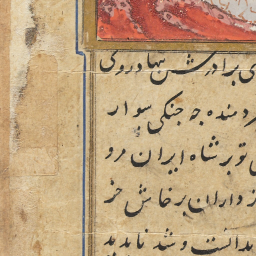 برادرش نهاد روی
خردمند و جنگی سوار
تو بر شاه ایران مرو
داران پرخاش خر
بدانست و شد ناپدید